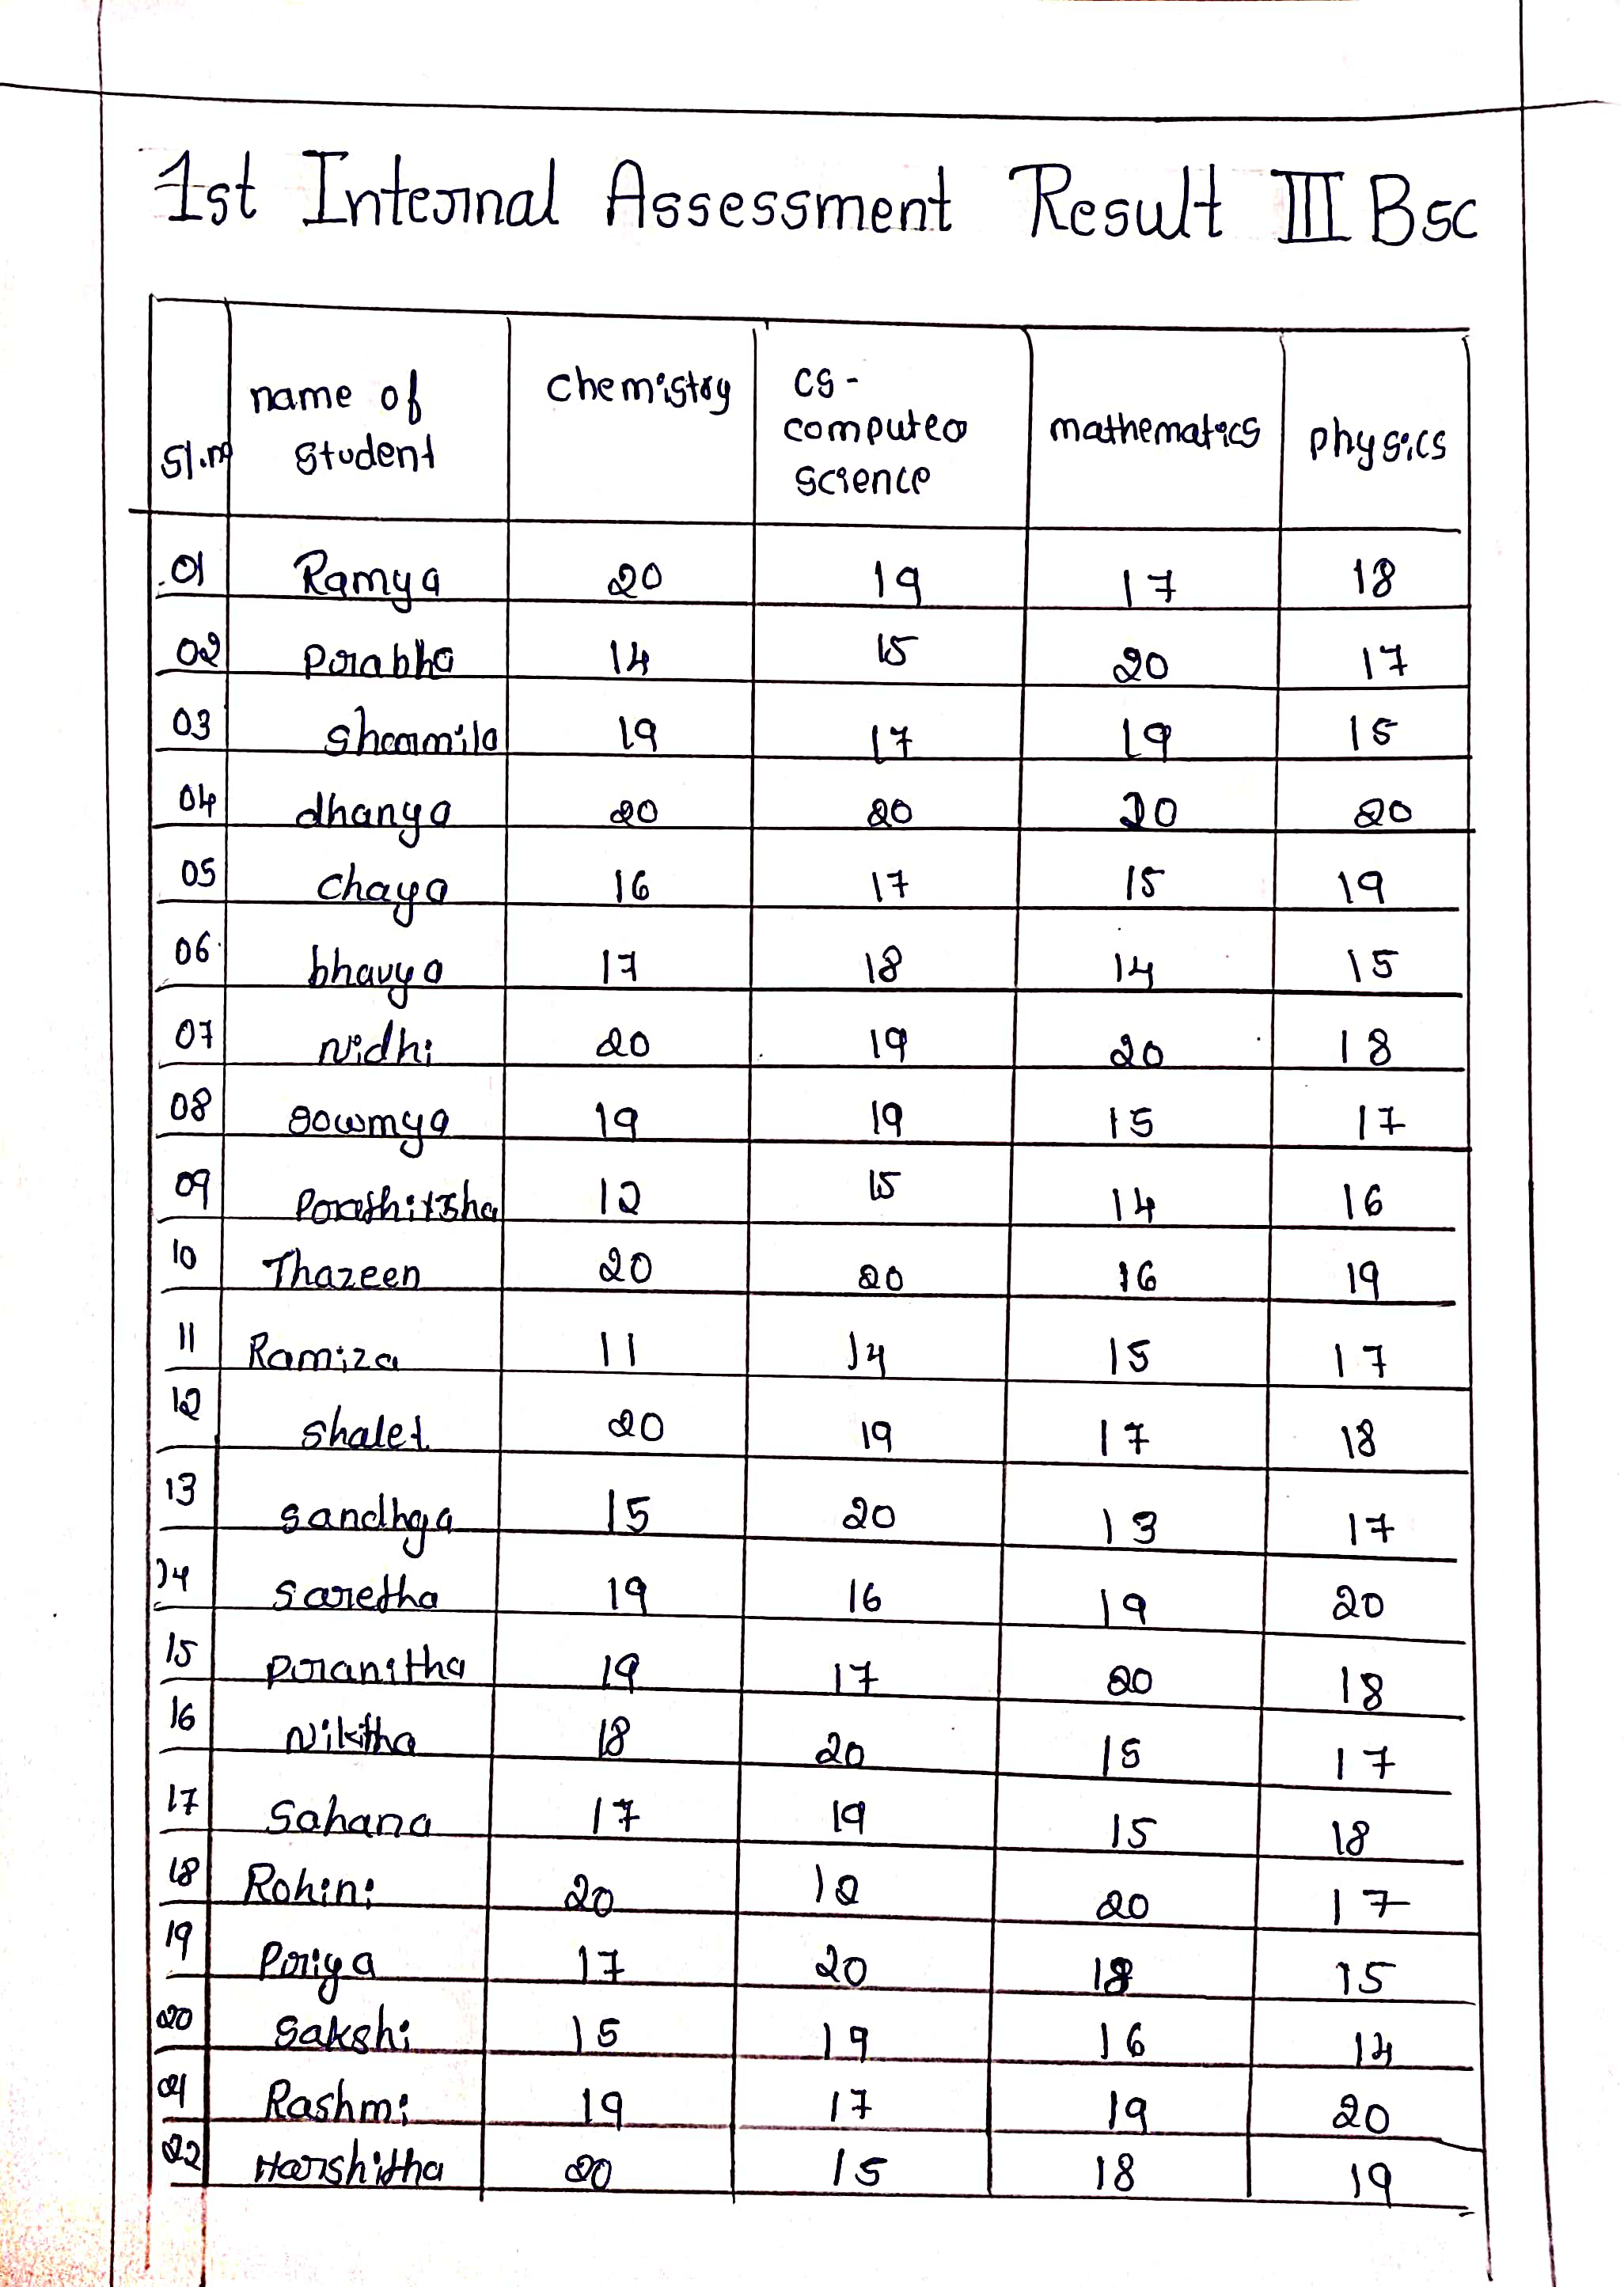 1st Internal Assessment Result III Bsc
Sl.no name of student chemistry cs - computer science mathematics physics
01 Ramya 20 19 17 18
02 Prabha 14 15 20 17
03 sharmila 19 17 19 15
04 dhanya 20 20 20 20
05 chaya 16 17 15 19
06 bhavya 17 18 14 15
07 Nidhi 20 19 20 18
08 sowmya 19 19 15 17
09 12 15 14 16
10 Thazeen 20 20 16 19
11 Ramiza 11 14 15 17
12 shalet 20 19 17 18
13 sandhya 15 20 13 17
14 saretha 19 16 19 20
15 pranitha 19 17 20 18
16 Nikitha 18 20 15 17
17 Sahana 17 19 15 18
18 Rohini 20 12 20 17
19 Priya 17 20 18 15
20 Sakshi 15 19 16 14
21 Rashmi 19 17 19 20
22 Harshitha 20 15 18 19